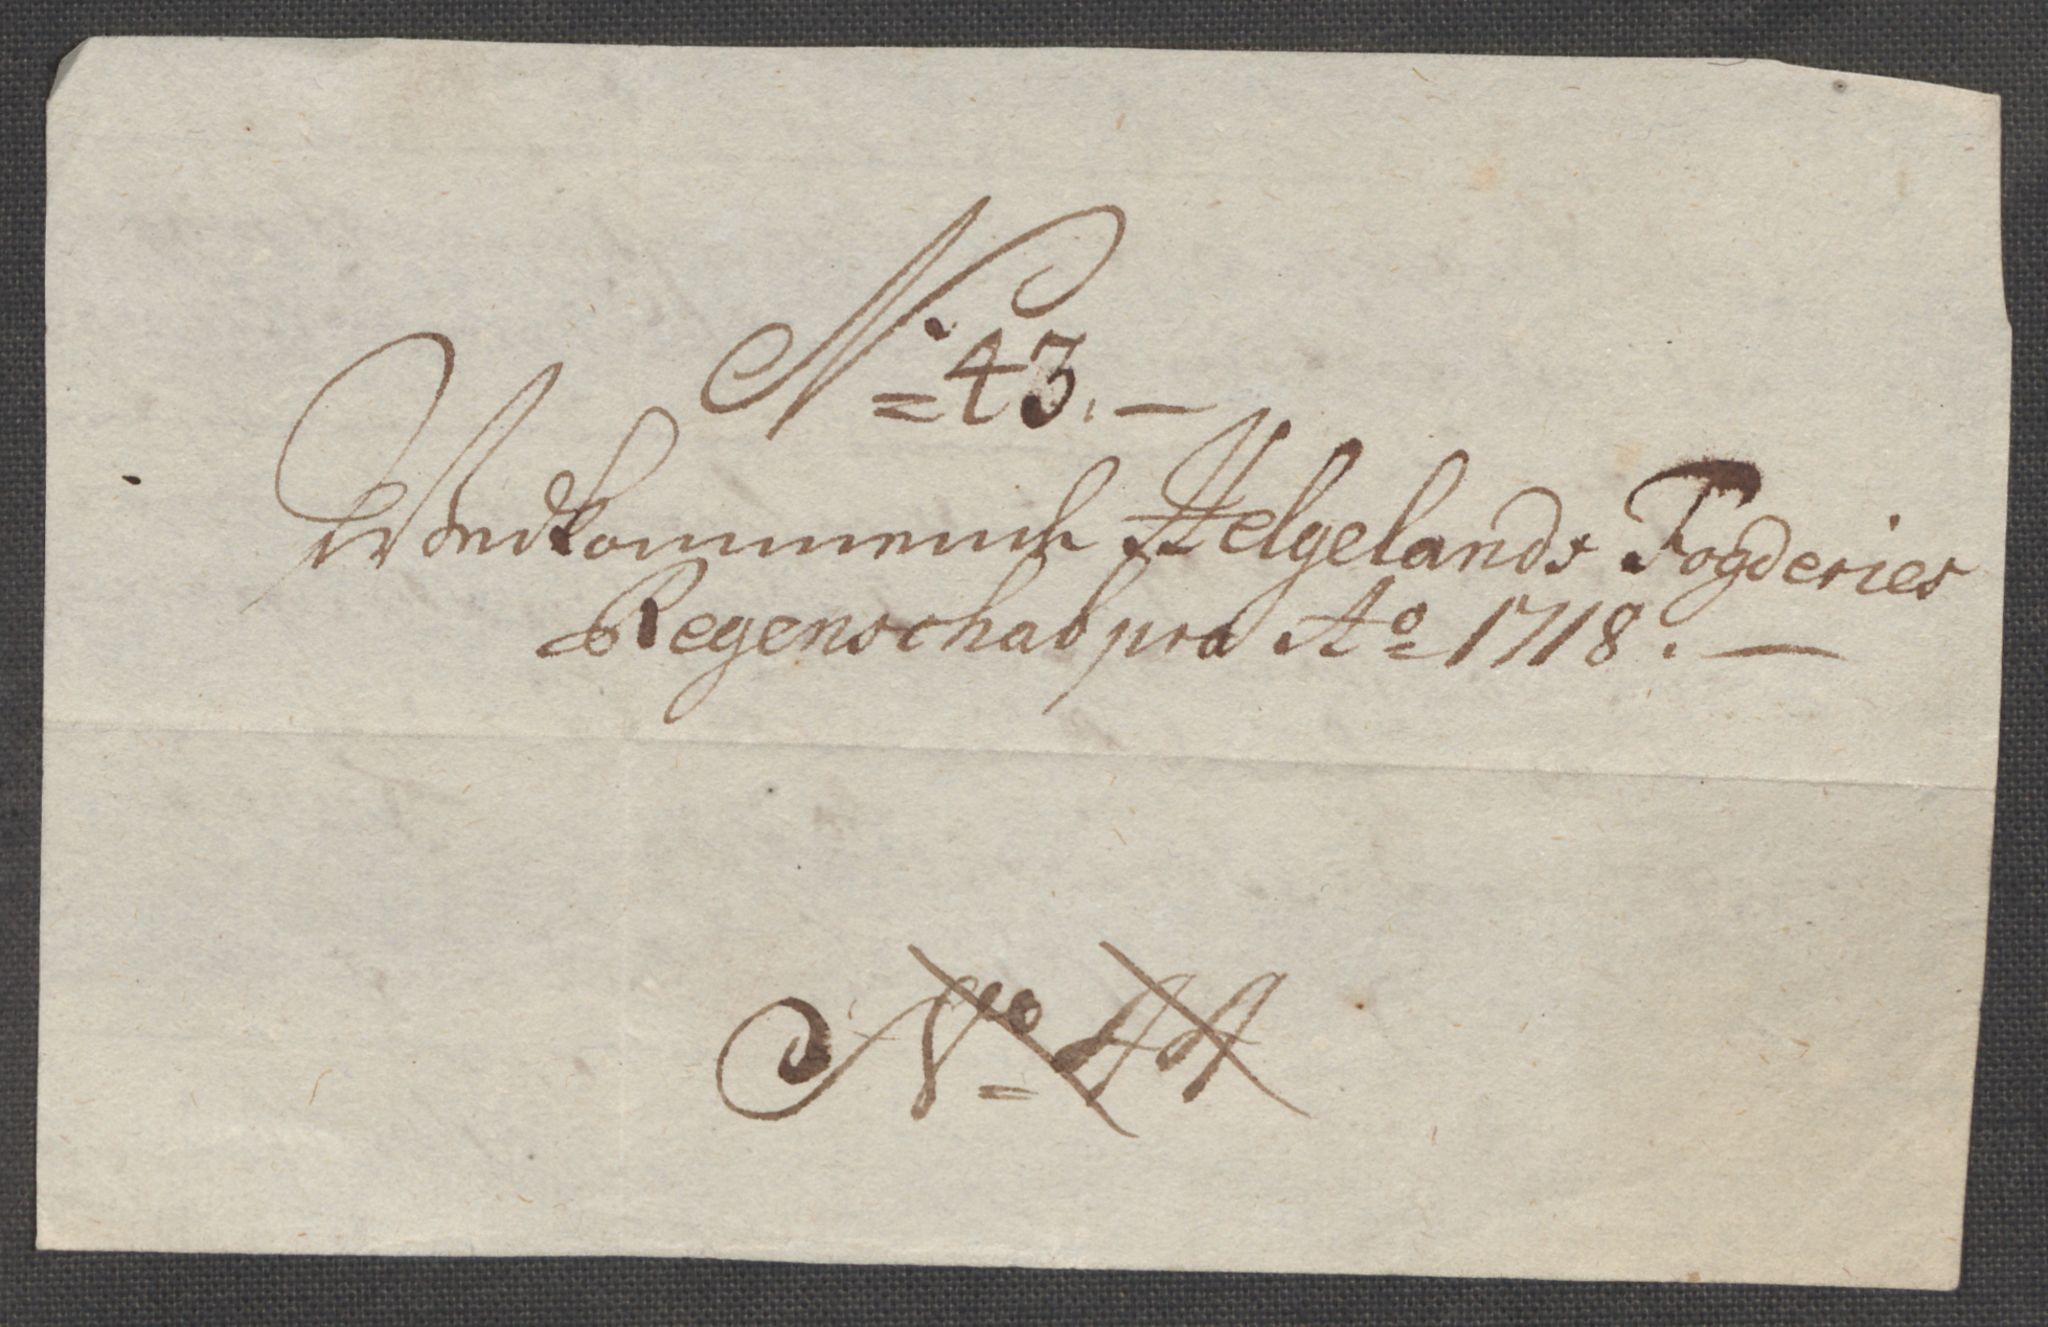 No 43.
Vedkommende Helgelands Fogderies
Regenschab pro Ao 1718.
No 44